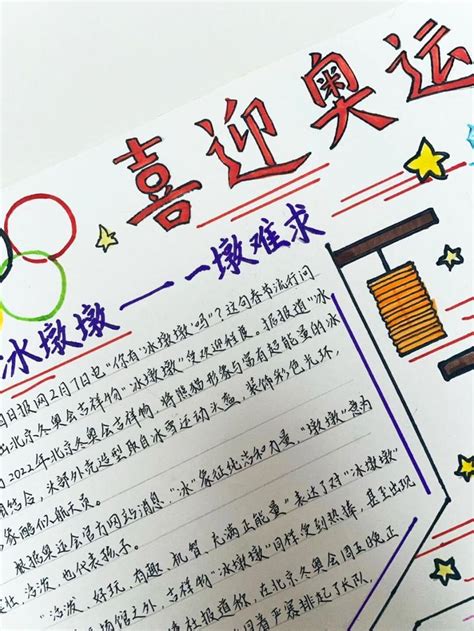 喜迎奥运
冰墩墩——一墩难求
"你有'冰墩墩'吗"?这句春节流行问
日报网2月7日电 受欢迎程度。据报道"冰
北京冬奥会吉祥物"冰墩墩"
为2022年北京冬奥会吉祥物,将熊猫形象与富有超能量的冰
结合,冰部外壳造型取自冰雪运动头盔,装饰彩色光环,
酷似航天员。
根据奥运会官方网站消息,"冰"象征纯洁和力量,"墩墩"意为
活泼,也代表孩子。
"活泼、好玩、有趣、机智、充满正能量"表达了对"冰墩墩"
场馆之外,吉祥物"冰墩墩"同样受到热捧,甚至出现
社报道称,在北京冬奥会周五晚正
着严寒排起了长队,